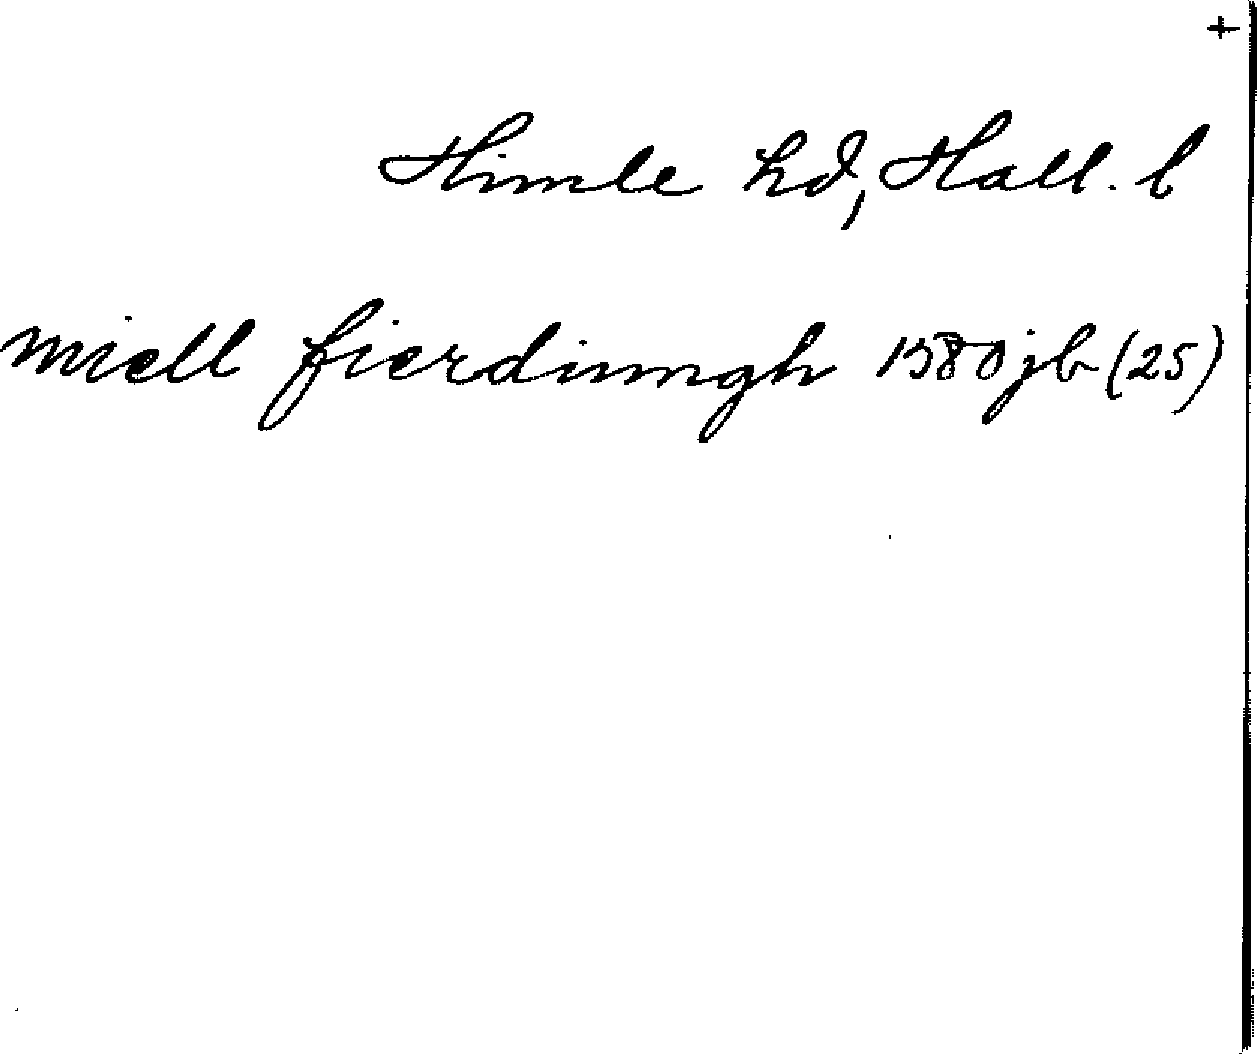 +
Himle hd, Hall. l
miell fierdinngh 1580 jb (25)